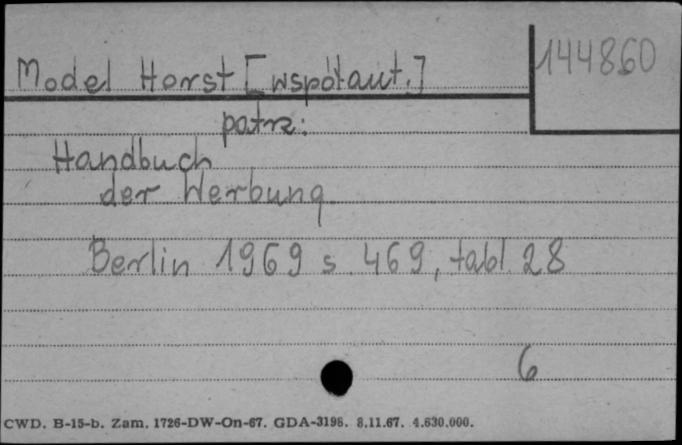 144860
Model Horst [współaut.]
patrz:
Handbuch
der Werbung
Berlin 1969 s. 469, tabl. 28
6
CWD. B-15-b. Zam. 1726-DW-On-67. GDA-3198. 8.11.67. 4.630.000.